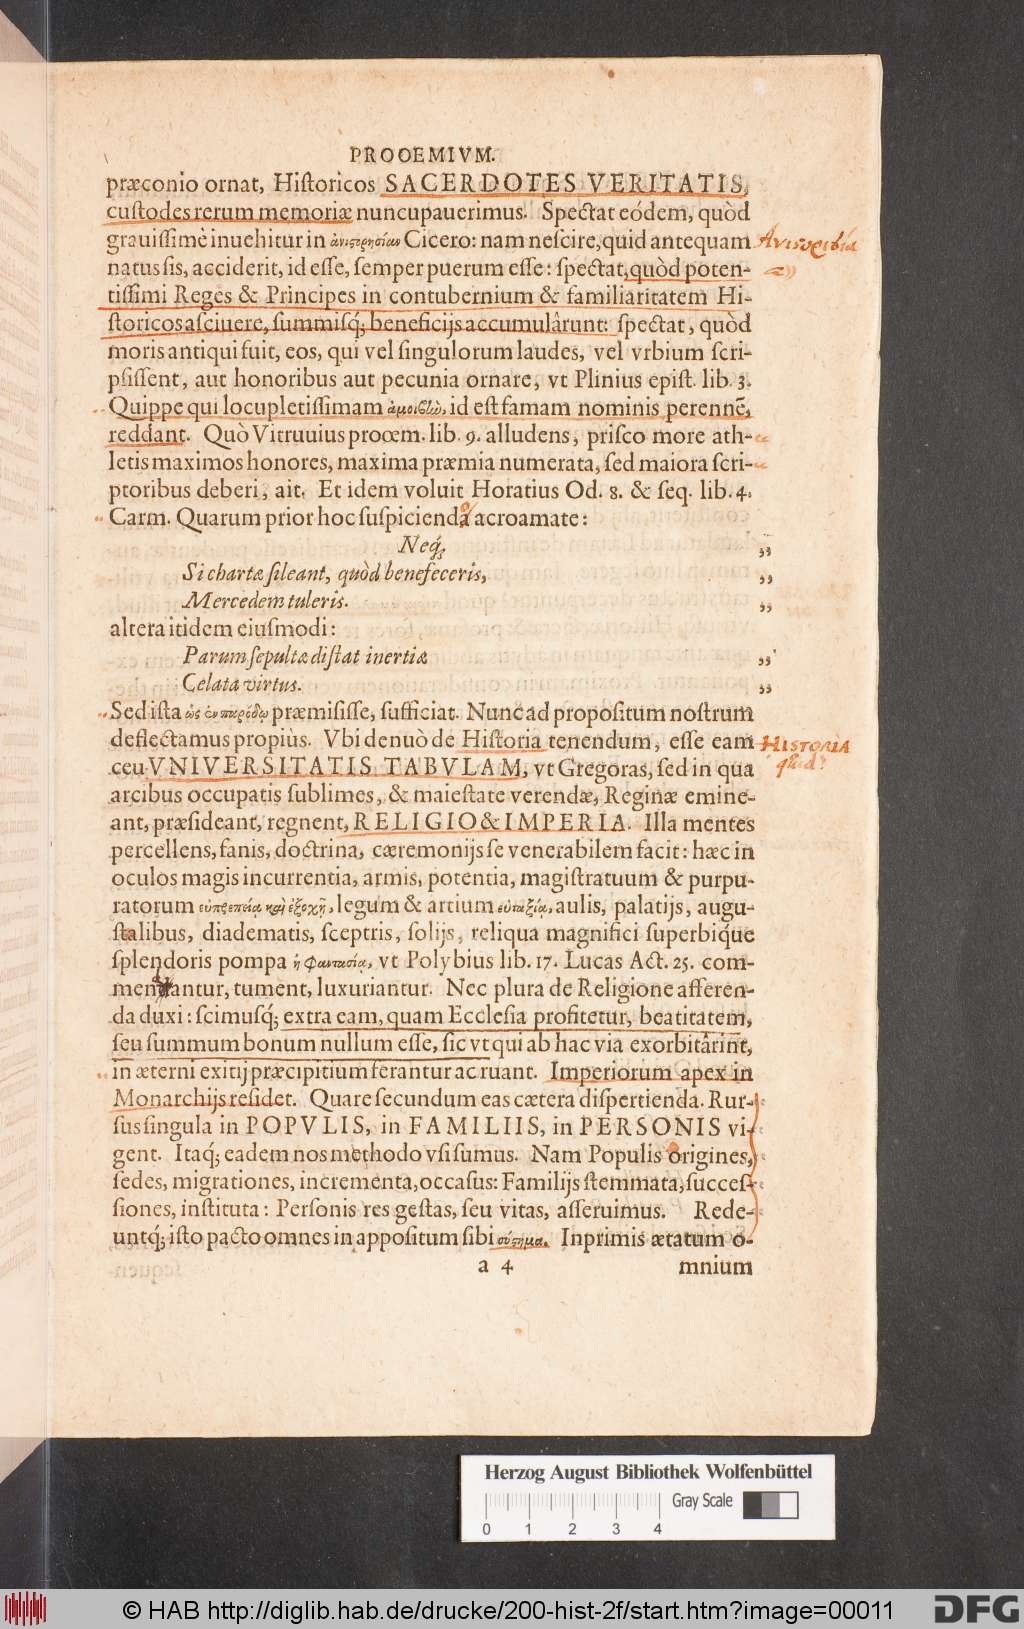 PROOEMIVM.
præconio ornat, Historicos SACERDOTES VERITATIS,
custodes rerum memoriæ nuncupauerimus. Spectat eódem, quòd
grauissimè inuehitur in ἀνιστορησίαν Cicero: nam nescire, quid antequam
natus sis, acciderit, id esse, semper puerum esse: spectat, quòd poten-
tissimi Reges & Principes in contubernium & familiaritatem Hi-
storicos asciuere, summisq́; beneficijs accumulârunt: spectat, quòd
moris antiqui fuit, eos, qui vel singulorum laudes, vel vrbium scri-
psissent, aut honoribus aut pecunia ornare, vt Plinius epist. lib. 3.
Quippe qui locupletissimam ἀμοιβὼ, id est famam nominis perennẽ,
reddant. Quò Vitruuius prooem. lib. 9. alludens, prisco more ath-
letis maximos honores, maxima præmia numerata, sed maiora scri-
ptoribus deberi, ait. Et idem voluit Horatius Od. 8. & seq. lib. 4.
Carm. Quarum prior hoc suspicienda acroamate:
Neq́;
Si chartæ sileant, quòd benefeceris,
Mercedem tuleris.
altera itidem eiusmodi:
Parum sepultæ distat inertiæ
Celata virtus.
Sed ista ὡς ἐν παρόδῳ præmisisse, sufficiat. Nunc ad propositum nostrum
deflectamus propiùs. Vbi denuò de Historia tenendum, esse eam
ceu VNIVERSITATIS TABVLAM, vt Gregoras, sed in qua
arcibus occupatis sublimes, & maiestate verendæ, Reginæ emine-
ant, præsideant, regnent, RELIGIO & IMPERIA. Illa mentes
percellens, fanis, doctrina, cæremonijs se venerabilem facit: hæc in
oculos magis incurrentia, armis, potentia, magistratuum & purpu-
ratorum εὐπρεπείᾳ καὶ ἐξοχῇ, legum & artium εὐταξίᾳ, aulis, palatijs, augu-
stalibus, diadematis, sceptris, solijs, reliqua magnifici superbiq́ue
splendoris pompa ἡ φαντασίᾳ, vt Polybius lib. 17. Lucas Act. 25. com-
mendantur, tument, luxuriantur. Nec plura de Religione afferen-
da duxi: scimusq́; extra eam, quam Ecclesia profitetur, beatitatem,
seu summum bonum nullum esse, sic vt qui ab hac via exorbitârint,
in æterni exitij præcipitium ferantur ac ruant. Imperiorum apex in
Monarchijs residet. Quare secundum eas cætera dispertienda. Rur-
sus singula in POPVLIS, in FAMILIIS, in PERSONIS vi-
gent. Itaq́; eadem nos methodo vsi sumus. Nam Populis origines,
sedes, migrationes, incrementa, occasus: Familijs stemmata, succes-
siones, instituta: Personis res gestas, seu vitas, asseruimus. Rede-
untq́; isto pacto omnes in appositum sibi σύστημα. Inprimis ætatum o-
a 4 mnium
HISTORIA
quid?
Herzog August Bibliothek Wolfenbüttel
Gray Scale
0 1 2 3 4
© HAB http://diglib.hab.de/drucke/200-hist-2f/start.htm?image=00011
DFG